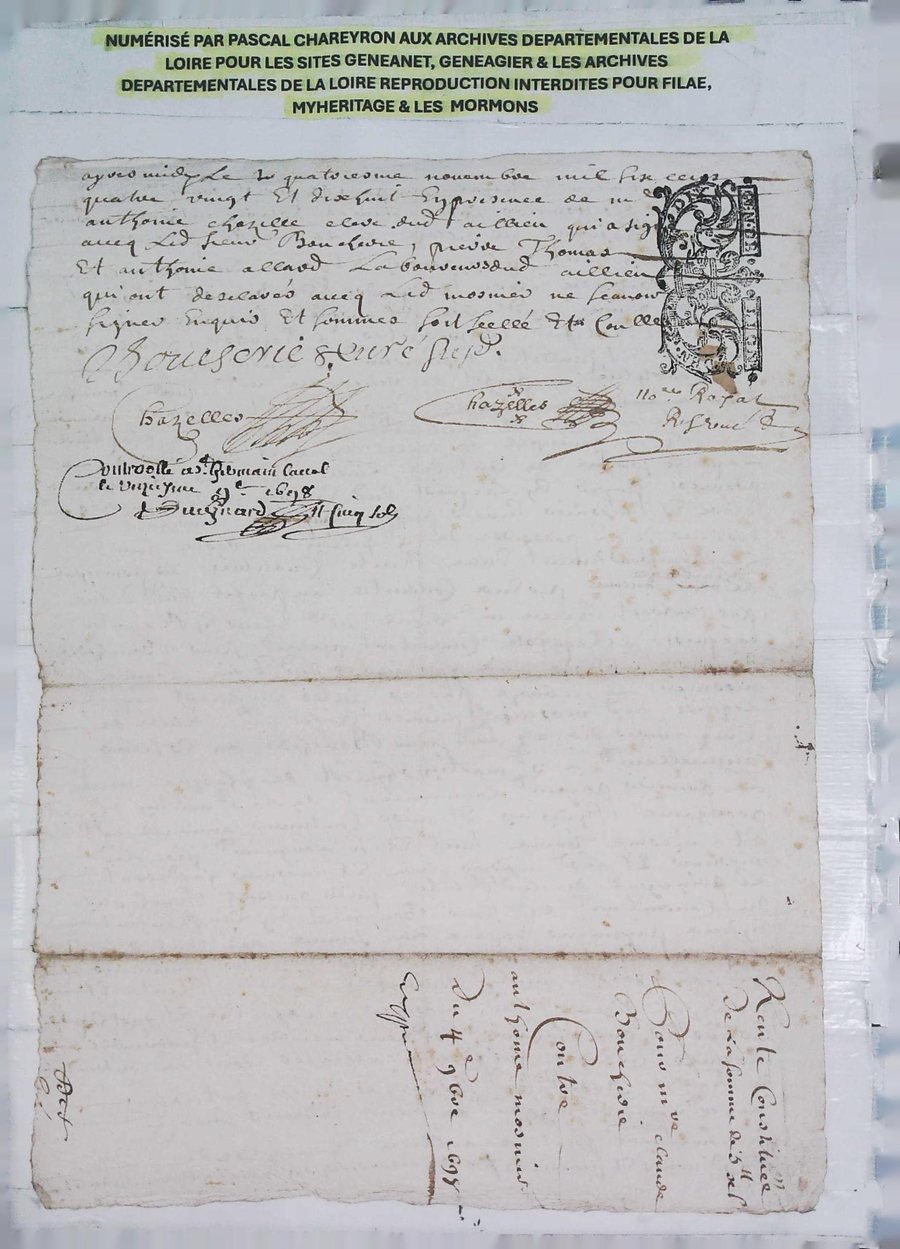 NUMÉRISÉ PAR PASCAL CHAREYRON AUX ARCHIVES DEPARTEMENTALES DE LA
LOIRE POUR LES SITES GENEANET, GENEAGIER & LES ARCHIVES
DEPARTEMENTALES DE LA LOIRE REPRODUCTION INTERDITES POUR FILAE,
MYHERITAGE & LES MORMONS
apres midy Le quatoresme novembre mil six cens
quatre vingt Et dixhuit En presence de
anthoine chazelle clerc dud aillieu qui a sig
avecq Led sieur Boucherie, pierre Thomas
Et anthoine allard Laboureurs dud aillieu
qui ont desclarés avecq Led mosnier ne scavoir
signer Enquis Et sommes soit scellé Et Coulle
Boucherie curé susd.
Chazelles
Chazelles
Controollé a St Germain Laval
le unziesme 9bre 1698
cinq sols
Rente Constituée
De La somme de 5ll
Pour mre claude
Boucherie
Contre
anthoine mosnier
Du 4e 9bre 1698